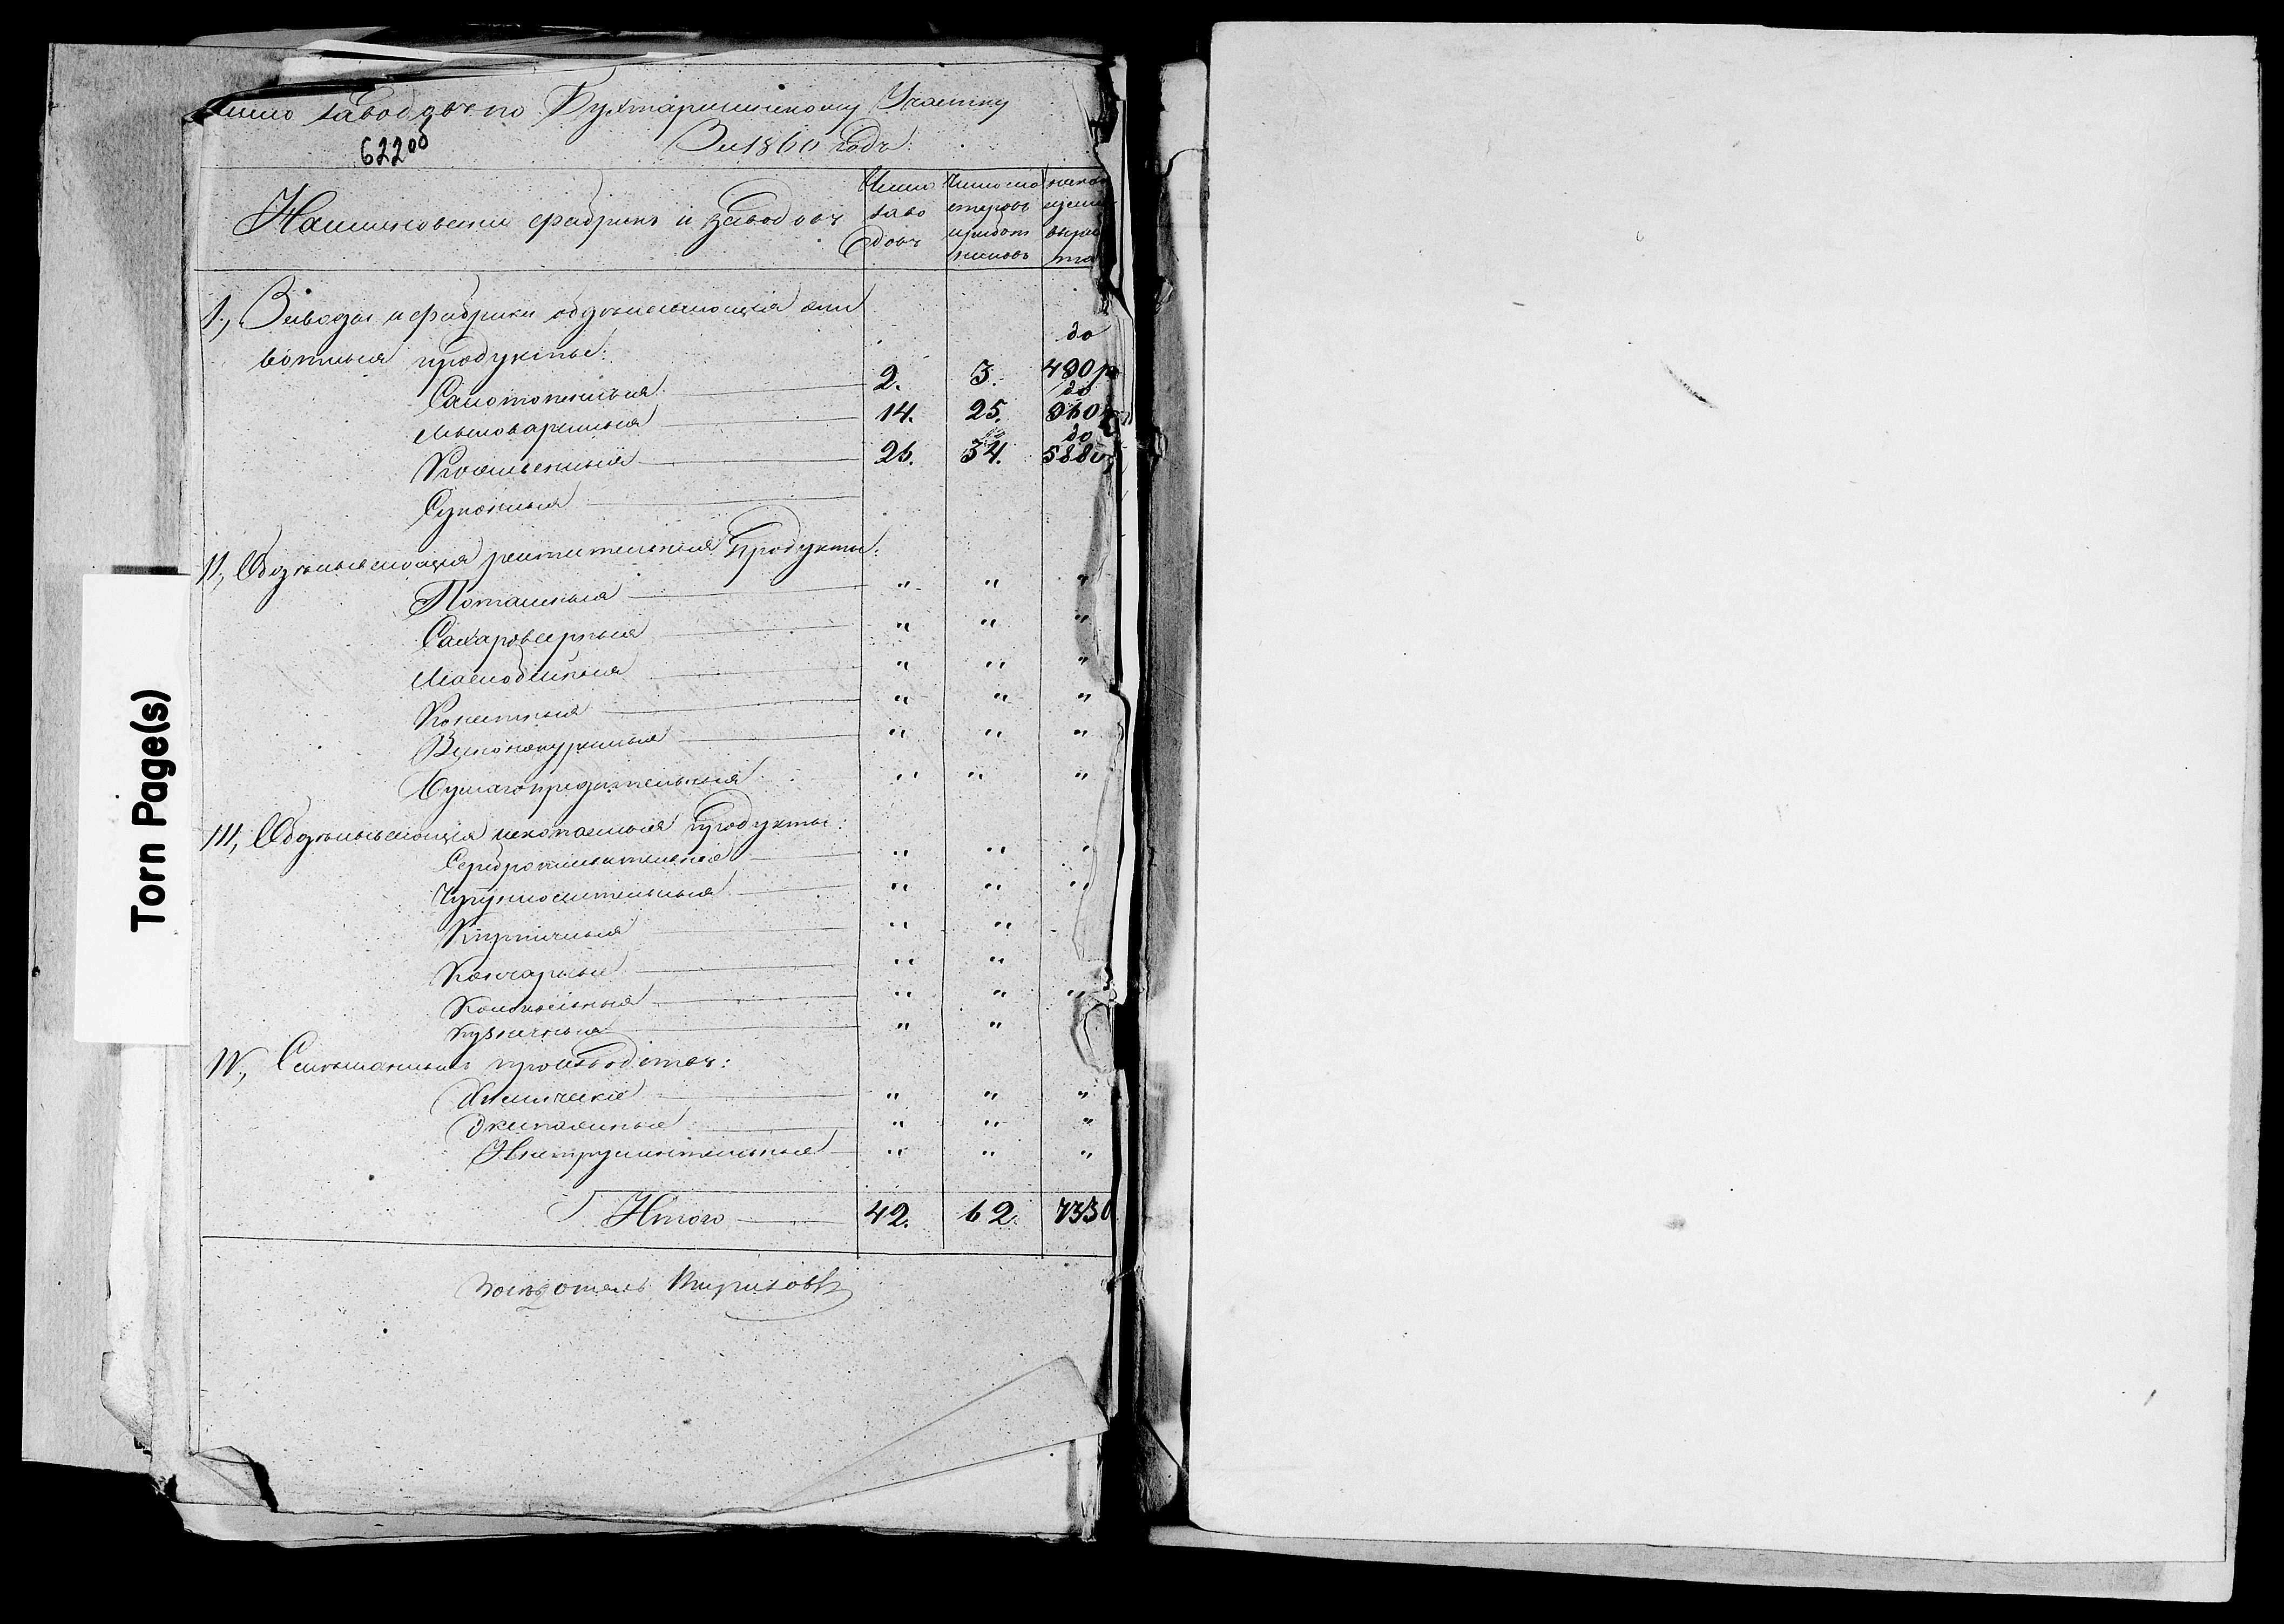 Число заводовъ по Бухтарминскому Участку
За 1860 годъ.
622об
Наименованіе фабрикъ и заводовъ
Число заво довъ
Число мастеровъ и работ никовъ
на какую сумму выра
I., Заводы и фабрики обдѣлывающія жи
вотныя продукты:
Салотопенныя 2. 3. до 490 р
Мыловаренныя 14. 25. до 960
Кожевенныя 26. 34. до 5880
Суконныя
II, Обдѣлывающія растительныя продукты:
Поташныя " " "
Сахароварныя " " "
Маслобойныя " " "
Канатныя " " "
Винокуренныя " " "
Бумагопрядительныя " " "
III, Обдѣлывающія ископаемыя продукты:
Сереброплавительныя " " "
Чугунноплавительныя " " "
Кирпичныя " "
Гончарныя " "
Колокольныя " " "
Кузнечныя " "
IV, Смѣшанныхъ производствъ:
Химическіе " " "
Экипажныя " " "
Инструментальныя " " "
Итого 42. 62. 7330
Засѣдатель
Torn Page(s)